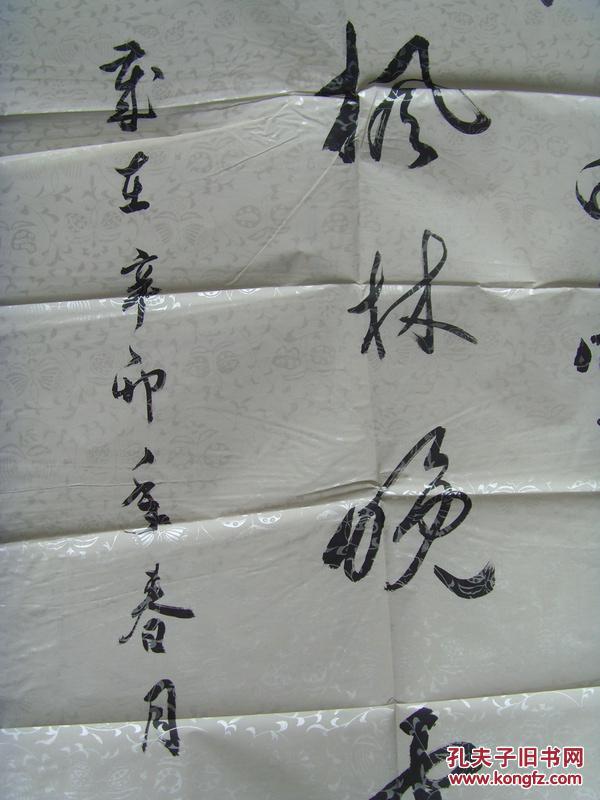 枫林晚
歲在辛卯年春月
孔夫子旧书网
www.kongfz.com